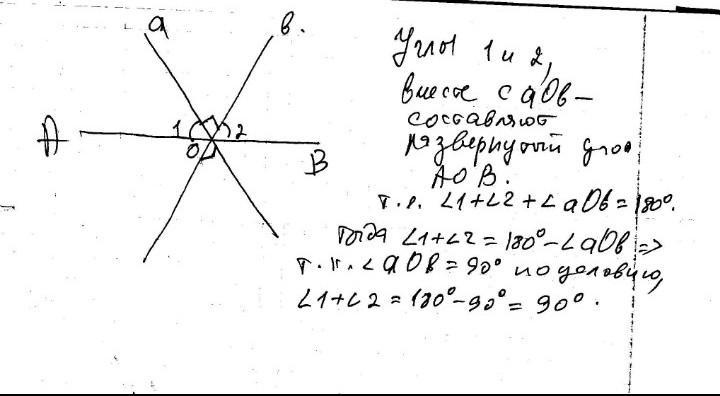 a
в.
A
1
2
O
B
Углы 1 и 2,
вместе с aOb —
составляют
развернутый угол
AOB.
т.е. ∠1+∠2+∠aOb=180°.
тогда ∠1+∠2=180°-∠aOb=>
т.к. ∠aOb=90° по условию,
∠1+∠2=180°-90°=90°.